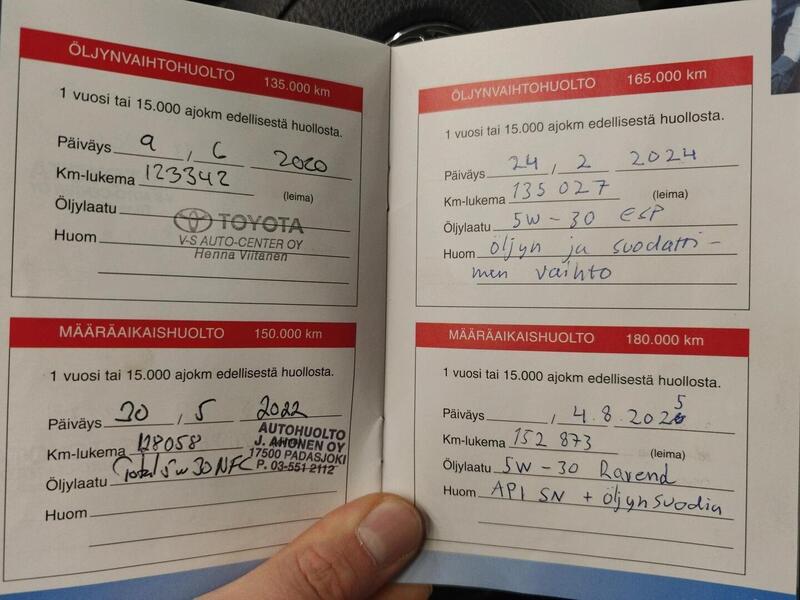 ÖLJYNVAIHTOHUOLTO 135.000 km
1 vuosi tai 15.000 ajokm edellisestä huollosta.
Päiväys 9 / 6 2020
Km-lukema 123342 (leima)
Öljylaatu
TOYOTA
V-S AUTO-CENTER OY
Huom
Henna Viitanen
MÄÄRÄAIKAISHUOLTO 150.000 km
1 vuosi tai 15.000 ajokm edellisestä huollosta.
Päiväys 30 / 5 2022
AUTOHUOLTO
Km-lukema 128058
J. AHONEN OY
17500 PADASJOKI
Öljylaatu Total 5W30 NFC
P. 03-551 2112
Huom
ÖLJYNVAIHTOHUOLTO 165.000 km
1 vuosi tai 15.000 ajokm edellisestä huollosta.
Päiväys 24 / 2 2024
Km-lukema 135 027 (leima)
Öljylaatu 5W-30 ESP
Huom öljyn ja suodatti-
men vaihto
MÄÄRÄAIKAISHUOLTO 180.000 km
1 vuosi tai 15.000 ajokm edellisestä huollosta.
Päiväys , 4.8.2025
Km-lukema 152 873 (leima)
Öljylaatu 5W-30 Ravend
Huom API SN + öljynsuodin